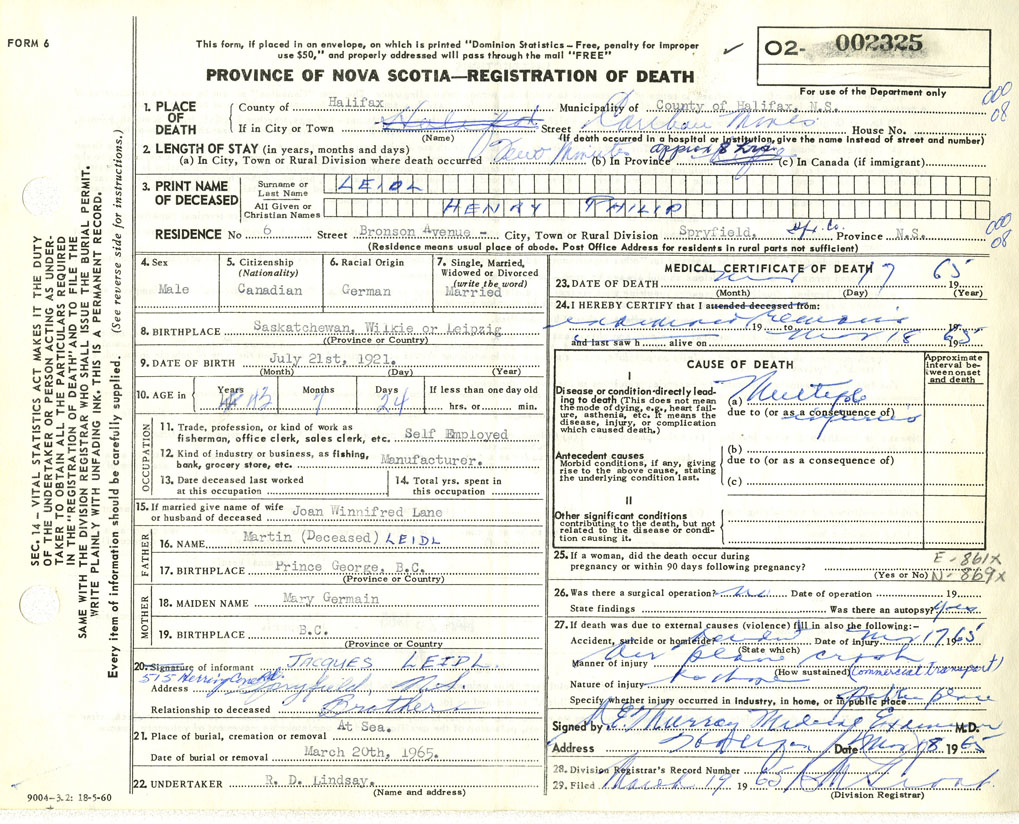 FORM 6
This form, if placed in an envelope, on which is printed "Dominion Statistics – Free, penalty for improper
use $50," and properly addressed will pass through the mail "FREE"
✓
O2- 002325
For use of the Department only
PROVINCE OF NOVA SCOTIA—REGISTRATION OF DEATH
000
08
1. PLACE OF DEATH
County of Halifax Municipality of County of Halifax, N.S.
If in City or Town Halifax Street Caribou Mines House No.
(Name) (If death occurred in a hospital or institution, give the name instead of street and number)
2. LENGTH OF STAY (in years, months and days)
(a) In City, Town or Rural Division where death occurred Few Minutes (b) In Province approx 8 hrs (c) In Canada (if immigrant)
3. PRINT NAME OF DECEASED
Surname or Last Name LEIDL
All Given or Christian Names HENRY PHILIP
RESIDENCE No 6 Street Bronson Avenue - City, Town or Rural Division Spryfield, Hfx. Co. Province N.S.
000
08
(Residence means usual place of abode. Post Office Address for residents in rural parts not sufficient)
4. Sex
Male
5. Citizenship (Nationality)
Canadian
6. Racial Origin
German
7. Single, Married, Widowed or Divorced (write the word)
Married
8. BIRTHPLACE Saskatchewan, Wilkie or Leipzig
((Province or Country)
9. DATE OF BIRTH July 21st, 1921.
(Month) (Day) (Year)
10. AGE in Years 43 Months 7 Days 24 If less than one day old
hrs. or min.
OCCUPATION
11. Trade, profession, or kind of work as fisherman, office clerk, sales clerk, etc. Self Employed
12. Kind of industry or business, as fishing, bank, grocery store, etc. Manufacturer.
13. Date deceased last worked at this occupation
14. Total yrs. spent in this occupation
15. If married give name of wife or husband of deceased Joan Winnifred Lane
FATHER
16. NAME Martin (Deceased) LEIDL
17. BIRTHPLACE Prince George, B.C.
(Province or Country)
MOTHER
18. MAIDEN NAME Mary Germain
19. BIRTHPLACE B.C.
(Province or Country
20. Signature of informant JACQUES LEIDL
515 Herring Cove Rd.
Address Spryfield, N.S.
Relationship to deceased Brother
21. Place of burial, cremation or removal At Sea.
Date of burial or removal March 20th, 1965.
22. UNDERTAKER R. D. Lindsay.
(Name and address)
MEDICAL CERTIFICATE OF DEATH
23. DATE OF DEATH Mar 17 1965
(Month) (Day) (Year)
24. I HEREBY CERTIFY that I attended deceased from:
examined remains 19 to 19
and last saw h alive on Mar 18 1965
CAUSE OF DEATH
Approximate interval between onset and death
I
Disease or condition directly leading to death (This does not mean the mode of dying, e.g., heart failure, asthenia, etc. It means the disease, injury, or complication which caused death.)
(a) Multiple
due to (or as a consequence of)
injuries
Antecedent causes
Morbid conditions, if any, giving rise to the above cause, stating the underlying condition last.
(b)
due to (or as a consequence of)
(c)
II
Other significant conditions contributing to the death, but not related to the disease or condition causing it.
25. If a woman, did the death occur during pregnancy or within 90 days following pregnancy?
(Yes or No)
E - 861X
N - 869X
26. Was there a surgical operation? no Date of operation 19
State findings Was there an autopsy? yes
27. If death was due to external causes (violence) fill in also the following:-
Accident, suicide or homicide? Accident Date of injury Mar 17 1965
(State which)
Manner of injury Air plane crash
(How sustained) (Commercial Transport)
Nature of injury
Specify whether injury occurred in Industry, in home, or in public place Public place
Signed by Murray Medical Examiner M.D.
Address Date Mar 18 1965
28. Division Registrar's Record Number
29. Filed March 19 1965
(Division Registrar)
9004-3.2: 18-5-60
SEC. 14 – VITAL STATISTICS ACT MAKES IT THE DUTY
OF THE UNDERTAKER OR PERSON ACTING AS UNDER-
TAKER TO OBTAIN ALL THE PARTICULARS REQUIRED
IN THE "REGISTRATION OF DEATH" AND TO FILE THE
SAME WITH THE DIVISION REGISTRAR WHO SHALL ISSUE THE BURIAL PERMIT.
WRITE PLAINLY WITH UNFADING INK. THIS IS A PERMANENT RECORD.
Every item of information should be carefully supplied. (See reverse side for instructions.)